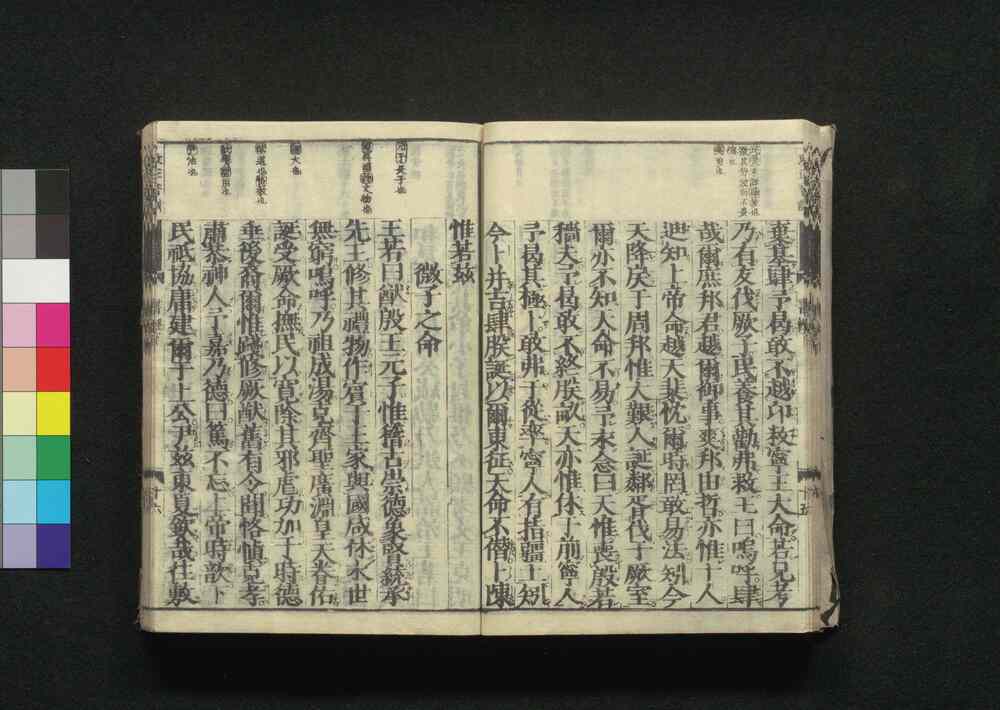 棄基肆予曷敢不越卬敉寧王大命若兄考
乃有友伐厥子民養其勸弗救王曰嗚呼肆
哉爾庶邦君越爾御事爽邦由哲亦惟十人
迪知上帝命越天棐忱爾時罔敢易法矧今
天降戾于周邦惟大艱人誕鄰胥伐于厥室
爾亦不知天命不易予永念曰天惟喪殷若
穡夫予曷敢不終朕畝天亦惟休于前寧人
予曷其極卜敢弗于從率寧人有指疆土矧
今卜并吉肆朕誕以爾東征天命不僭卜陳
惟若茲
微子之命
王若曰猷殷王元子惟稽古崇德象賢統承
先王修其禮物作賓于王家與國咸休永世
無窮嗚呼乃祖成湯克齊聖廣淵皇天眷佑
誕受厥命撫民以寬除其邪虐功加于時德
垂後裔爾惟踐修厥猷舊有令聞恪慎克孝
肅恭神人予嘉乃德曰篤不忘上帝時歆下
民祇協庸建爾于上公尹茲東夏欽哉往敷